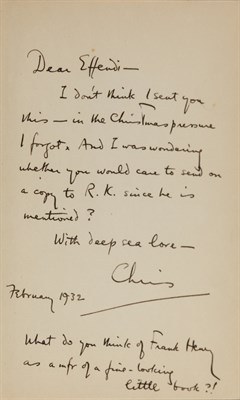 Dear Effendi—
I don't think I sent you
this — in the Christmas pressure
I forgot. And I was wondering
whether you would care to send on
a copy to R. K. since he is
mentioned?
With deep sea love —
Chris
February 1932
What do you think of Frank Henry
as a mfr of a fine-looking
little book?!